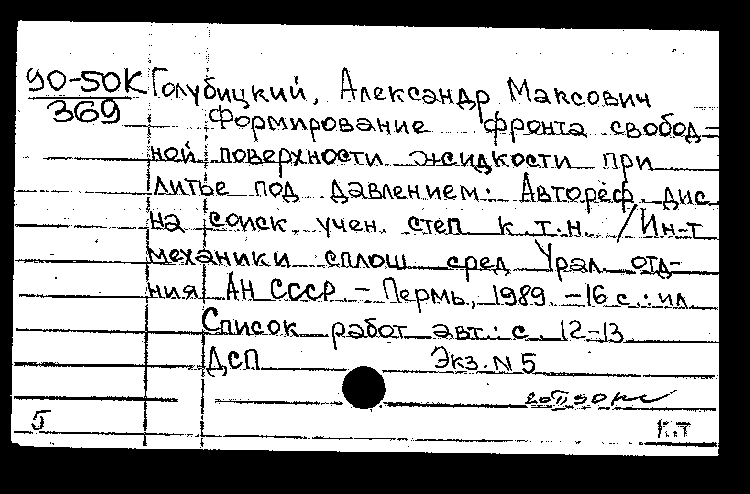 90-50К Голубицкий, Александр Максович
369 Формирование фронта свобод=
ной поверхности жидкости при
литье под давлением: Автореф. дис.
на соиск. учен. степ к.т.н. /Ин-т
механики сплош сред Урал. отд-
ния АН СССР – Пермь, 1989. –16 с.: ил
Список работ авт.: с. 12–13
ДСП Экз. N 5
5 К.Т